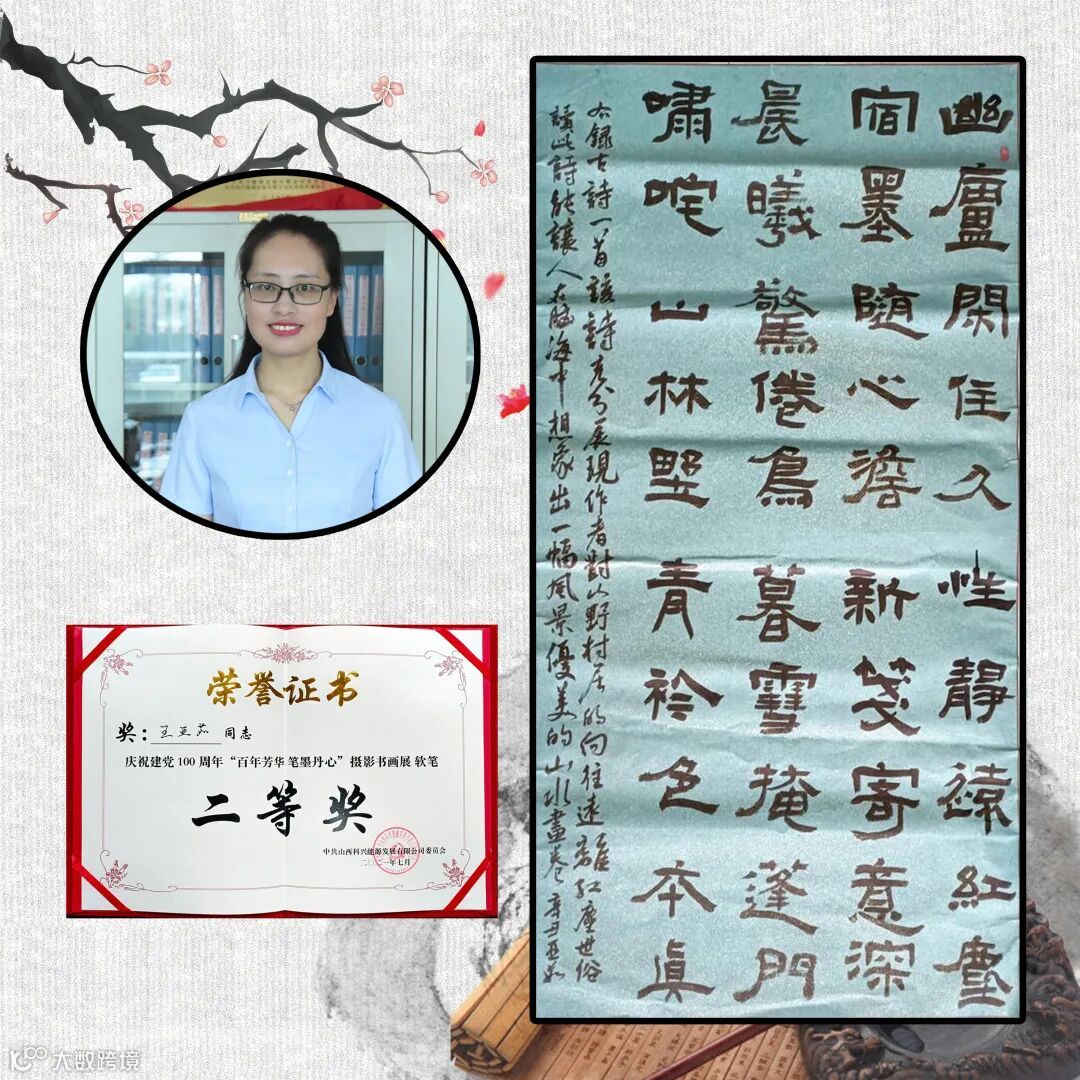 荣誉证书
奖：王亚茹 同志
庆祝建党 100 周年“百年芳华 笔墨丹心”摄影书画展 软笔
二等奖
中共山西科兴能源发展有限公司委员会
二〇二一年七月
幽廬閑住久性靜遠紅塵
宿墨隨心澹新箋寄意深
晨曦驚倦鳥暮雪掩蓬門
嘯咤山林野青衿色本眞
右錄古詩一首該詩充分展現作者對山野村居的向往遠離紅塵世俗
讀此詩能讓人在腦海中想象出一幅風景優美的山水畫卷 辛丑亞茹
大数跨境